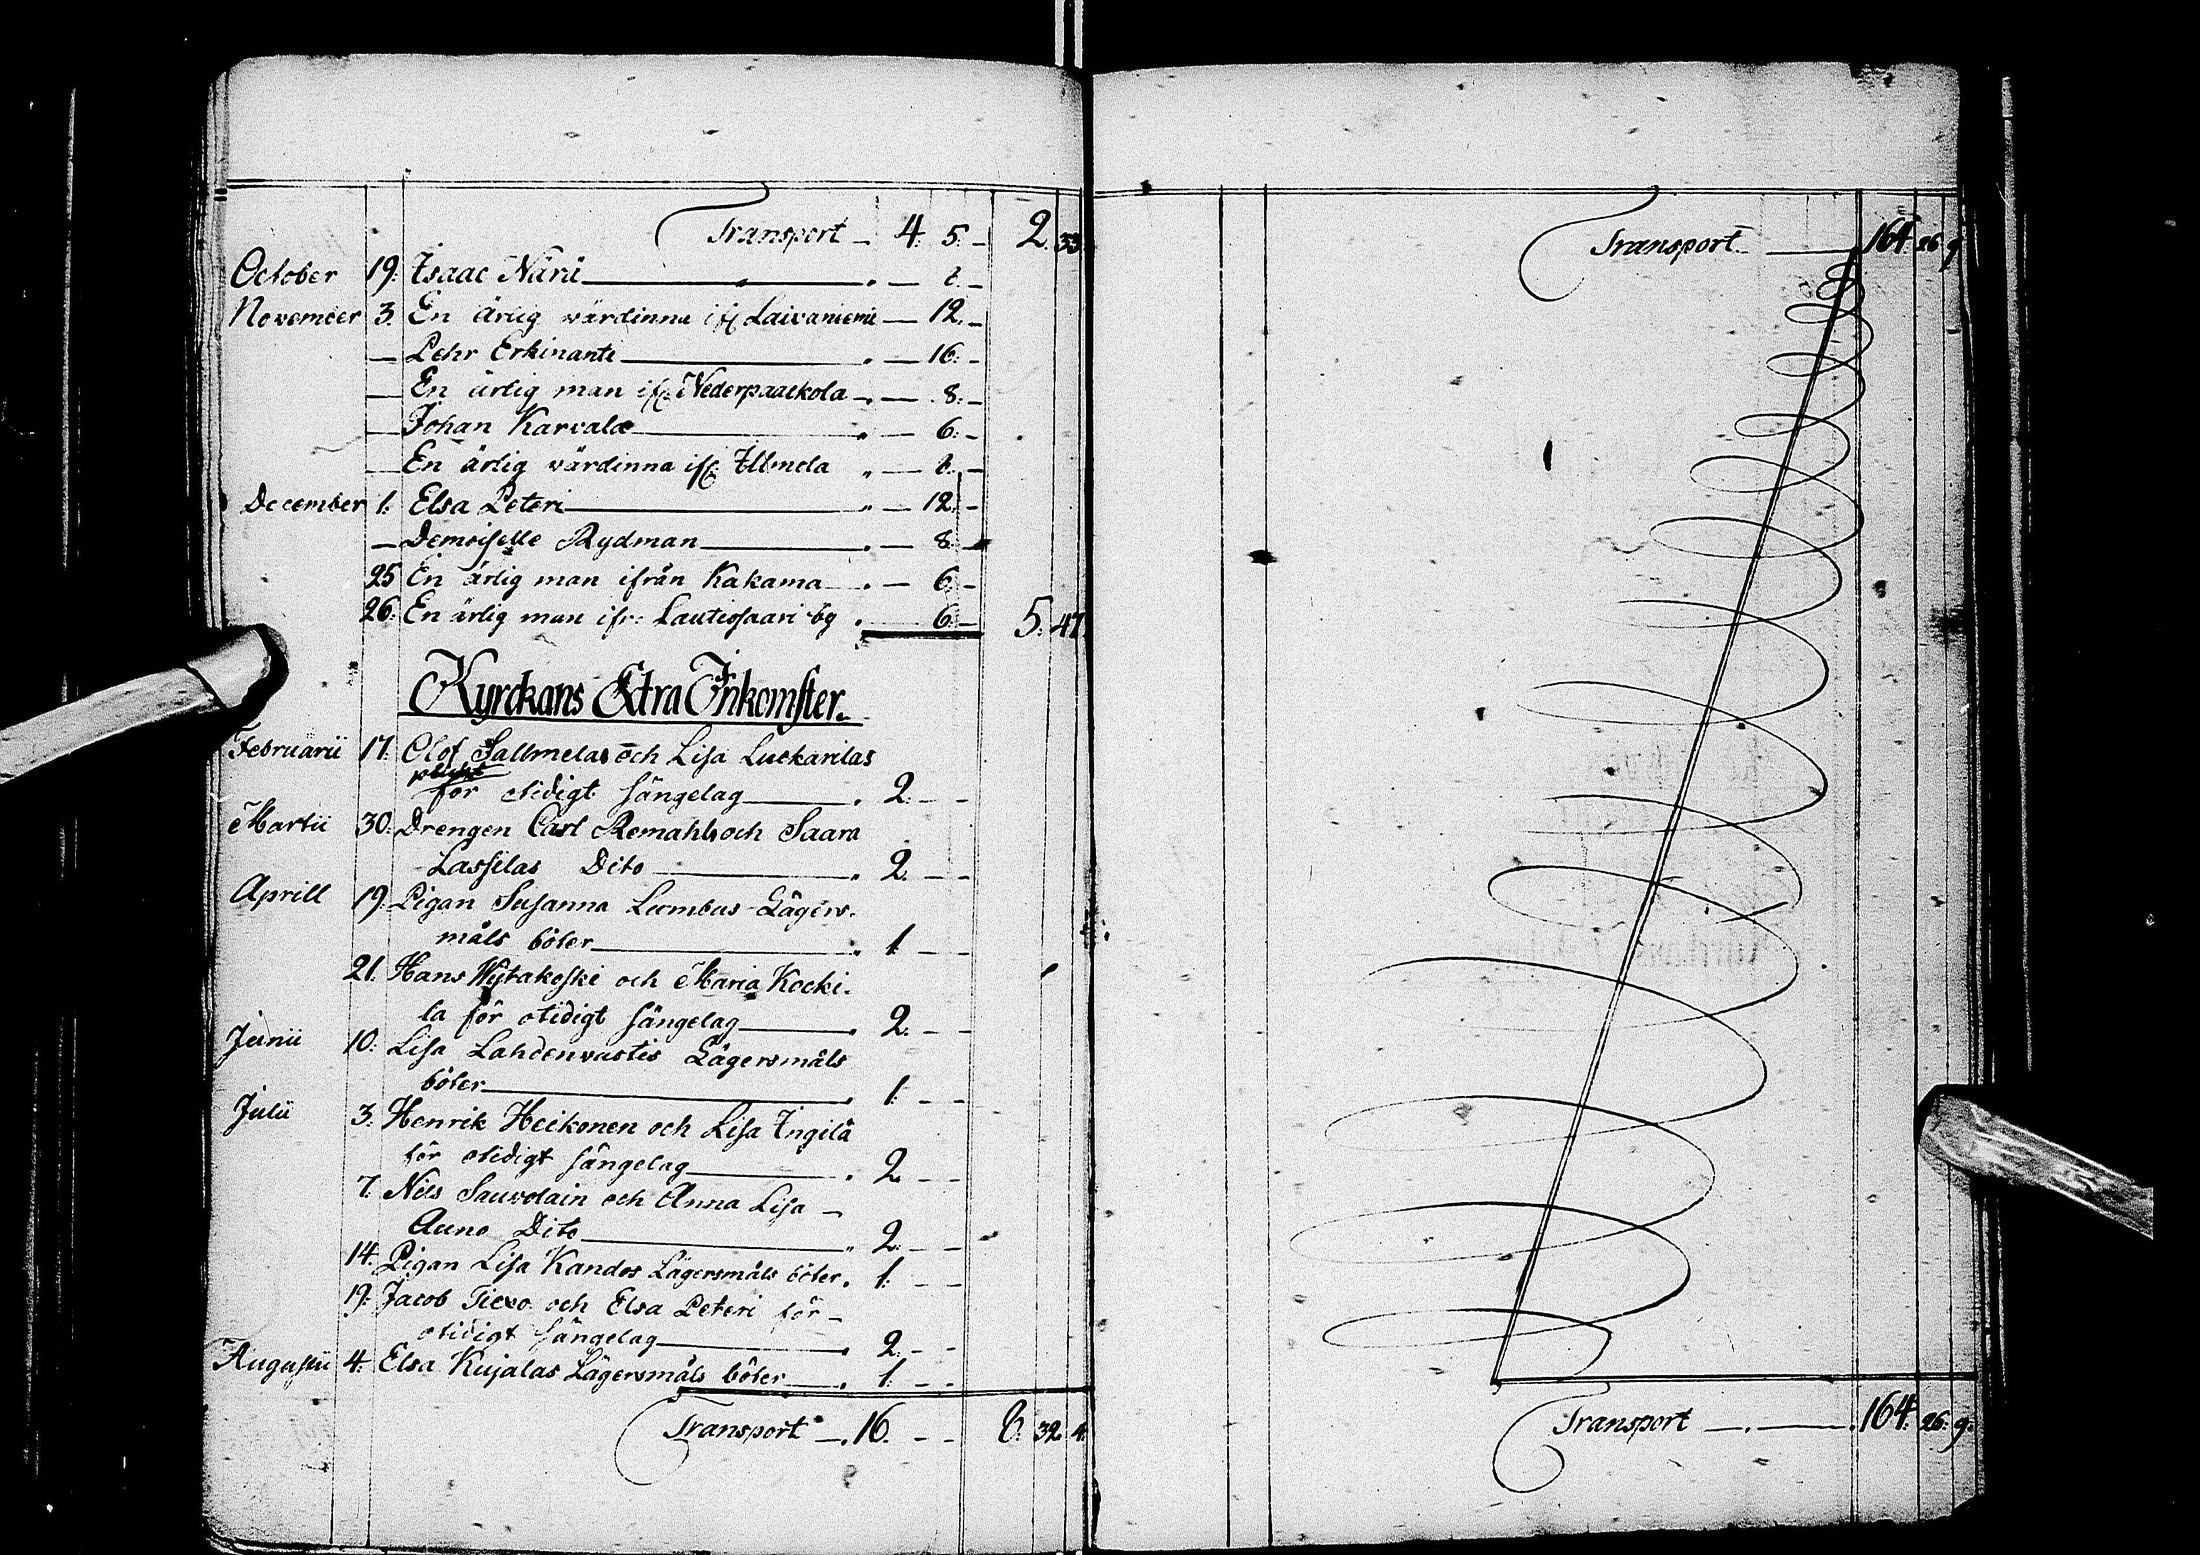 Transport — 4. 5. — 2. 33.
October 19. Isaac Närü — . — 6. —
November 3. En ärlig värdinna ifr Laivaniemi — 12. —
— Pehr Erkinanti — . — 16. —
— En ärlig man ifr. Nederpaackola — . — 8. —
— Johan Karvala — . — 6. —
— En ärlig värdinna ifr. Illmola . — 6. —
December 1. Elsa Peteri — . — 12. —
— Demoiselle Rydman — . — 8. —
25 En ärlig man ifrån Kakama — . — 6. —
26. En ärlig man ifr: Lautiosaari by . — 6. — 5. 47.
Kyrckans Extra Inkomster.
Februarii 17. Olof Sallmelas och Lisa Luckarilas
för otidigt sängelag — . 2. — —
Martii 30. Drengen Carl Remahls och Saara
Lassilas Dito — . 2. — —
Aprill 19. Pigan Susanna Lumbus Lägers-
måls böter — . 1. — —
21. Hans Wytakoski och Maria Kocki-
la för otidigt sängelag — . 2. — —
Junii 10. Lisa Lahdenvastis Lägersmåls
böter — . 1. — —
Julii 3. Henrik Heikonen och Lisa Ingilä
för otidigt sängelag — . 2. — —
7. Nils Sauvolain och Anna Lisa —
Auno Dito — . 2. — —
14. Pigan Lisa Kandos Lägersmåls böter. 1. — —
19. Jacob Tiexo och Elsa Peteri för —
otidigt sängelag — . 2. — —
Augusti 4. Elsa Kujalas Lägersmåls böter — . 1. — —
Transport — . 16. — — 8. 32. 4.
Transport — 164. 26. 9.
Transport — . — . 164. 26. 9.